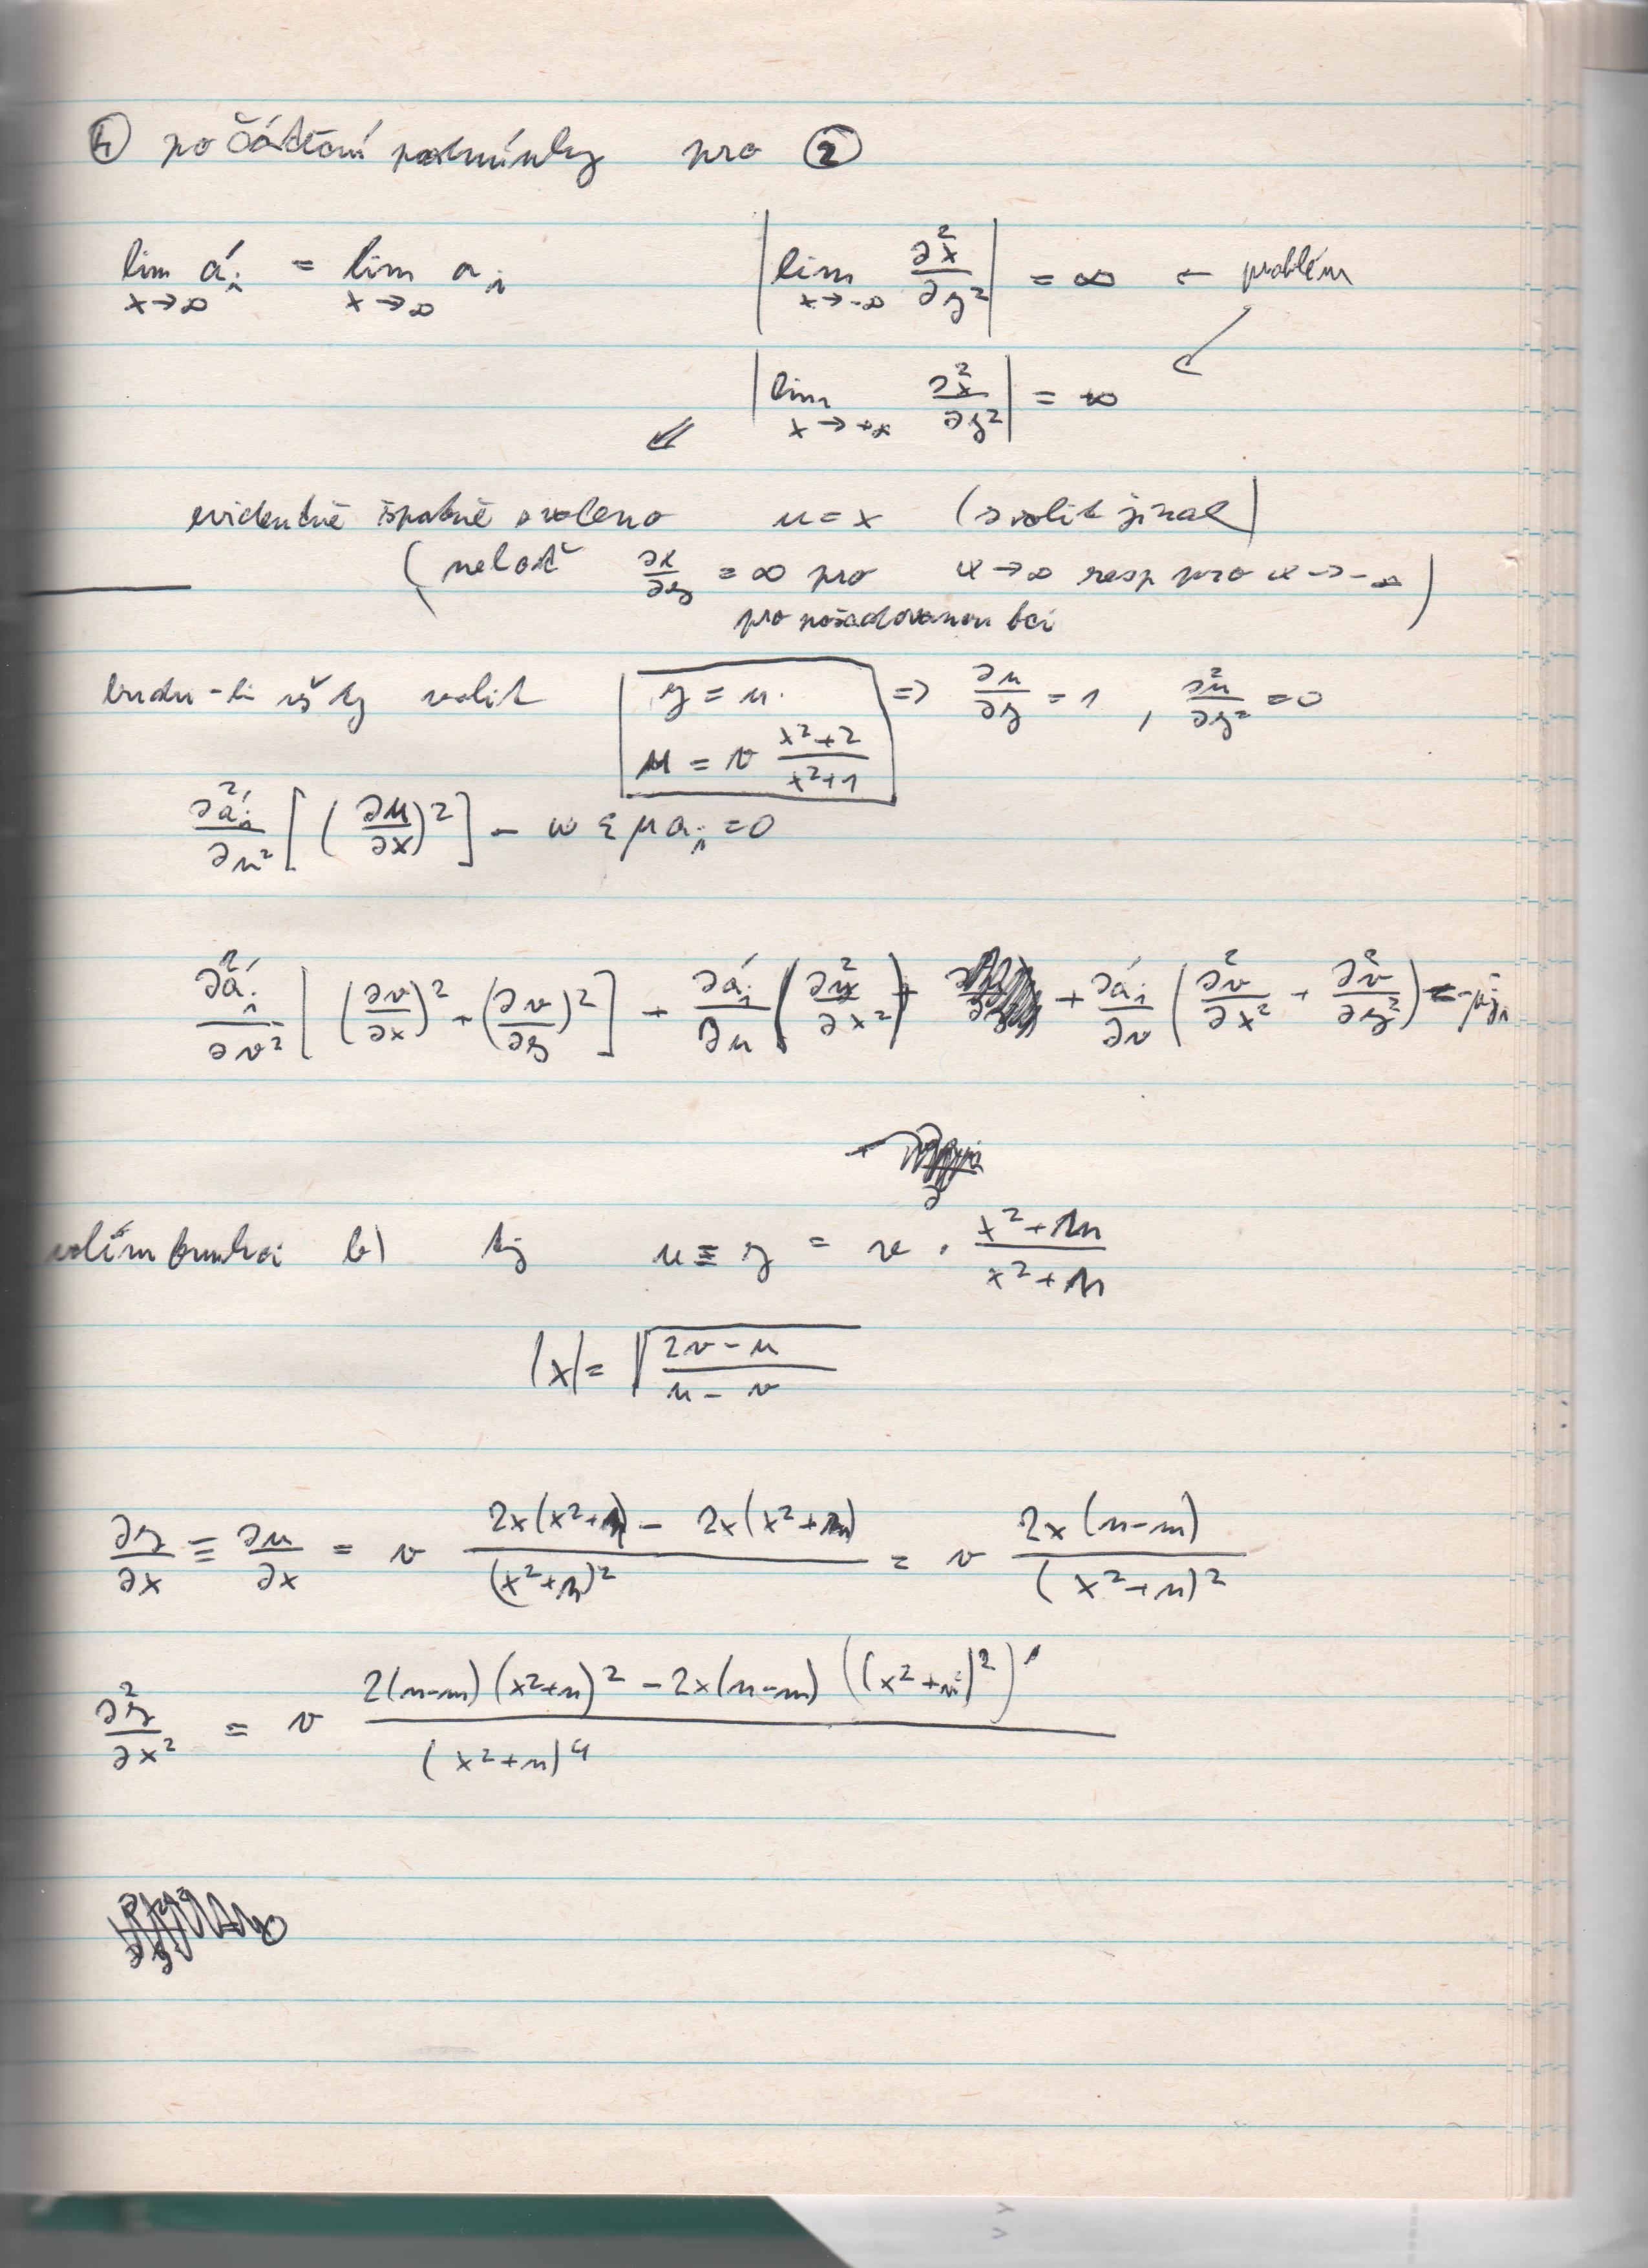 ④ počáteční podmínky pro ②
lim x→∞ á_i = lim x→∞ a_i
|lim x→-∞ ∂²x/∂y²| = ∞ ← problém
|lim x→+∞ ∂²x/∂y²| = ∞
evidentně špatně zvoleno u = x (zvolit jinak)
(neboť ∂x/∂y = ∞ pro x→∞ resp pro x→-∞)
pro požadovanou fci
budu-li vždy volit
y = u
u = v (x²+2)/(x²+1)
⇒ ∂u/∂y = 1 , ∂²u/∂y² = 0
∂²á_i/∂u² [(∂u/∂x)²] - w ε μ a_i = 0
∂²á_i/∂v² [(∂v/∂x)² + (∂v/∂y)²] + ∂á_i/∂u (∂²u/∂x²) + ∂á_i/∂v (∂²v/∂x² + ∂²v/∂y²) = -μj_i
volím funkci b) tj u ≡ y = v · (x²+m)/(x²+n)
|x| = √((2v-u)/(u-v))
∂y/∂x ≡ ∂u/∂x = v (2x(x²+n) - 2x(x²+m))/(x²+n)² = v 2x(n-m)/(x²+n)²
∂²y/∂x² = v (2(n-m)(x²+n)² - 2x(n-m)((x²+n)²)')/(x²+n)⁴